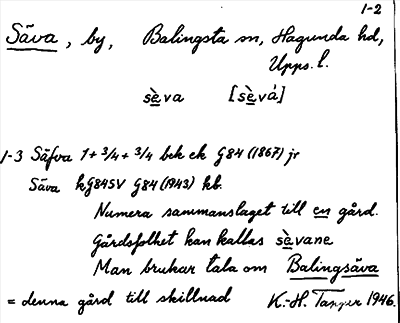 1-2
Säva, by, Balingsta sn, Hagunda hd,
Upps. l.
sè̱va [sè̱vá]
1-3 Säfva 1+3/4+3/4 bek ek G84 (1867) jr
Säva kG84SV G84 (1943) kb.
Numera sammanslaget till en gård.
Gårdsfolket kan kallas sè̱vane
Man brukar tala om Balingsäva
= denna gård till skillnad K.-H. Tapper 1946.